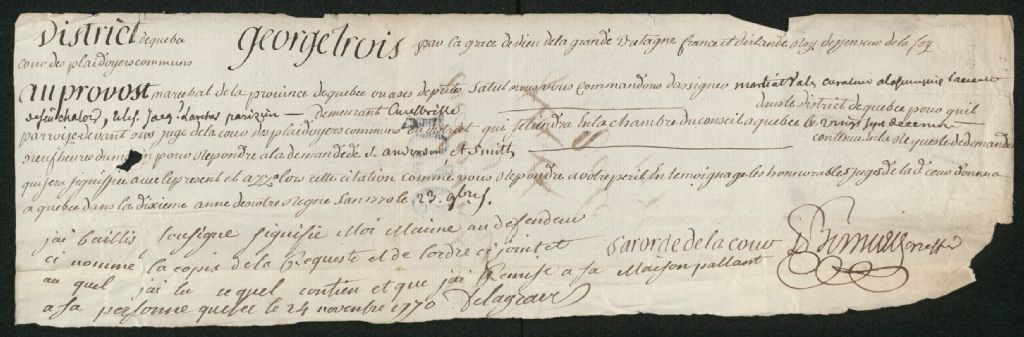 District de quebec George trois par la grace de dieu de la grande Bretagne france et d'irlande Roy deffenseur de la foy
cour des plaidoyers communs
au provost mareshal de la province de quebec ou a ses deputés Salut nous vous commandons d'assigner
demeurant en cette ville dans le district de quebec pour qu'il
paroisse devant nos juges de la cour des plaidoyers communs du district qui se tiendra En la chambre du conseil a quebec le vingt sept decembre
neuf heures du matin pour Repondre a la demande de S. anderson et Smith contenue En la Requeste de demande
qui sera signiffiée avec le present et alors cette citation comme vous Repondre a votre peril En temoignage les honorables juges de la de. cour donné
a quebec dans la dixieme année de notre Regne L'an 1770 le 23. 9bres.
j'ai baillif sousigné signifié Moi Maime au defendeur
ci nommé la copie de la Requeste et de lordre ci joint et par orde de la cour
au quel j'ai lu ce quel contien et que j'ai Remise a sa Maison pallant
a sa personne quebec le 24 novembre 1770 Delagrave